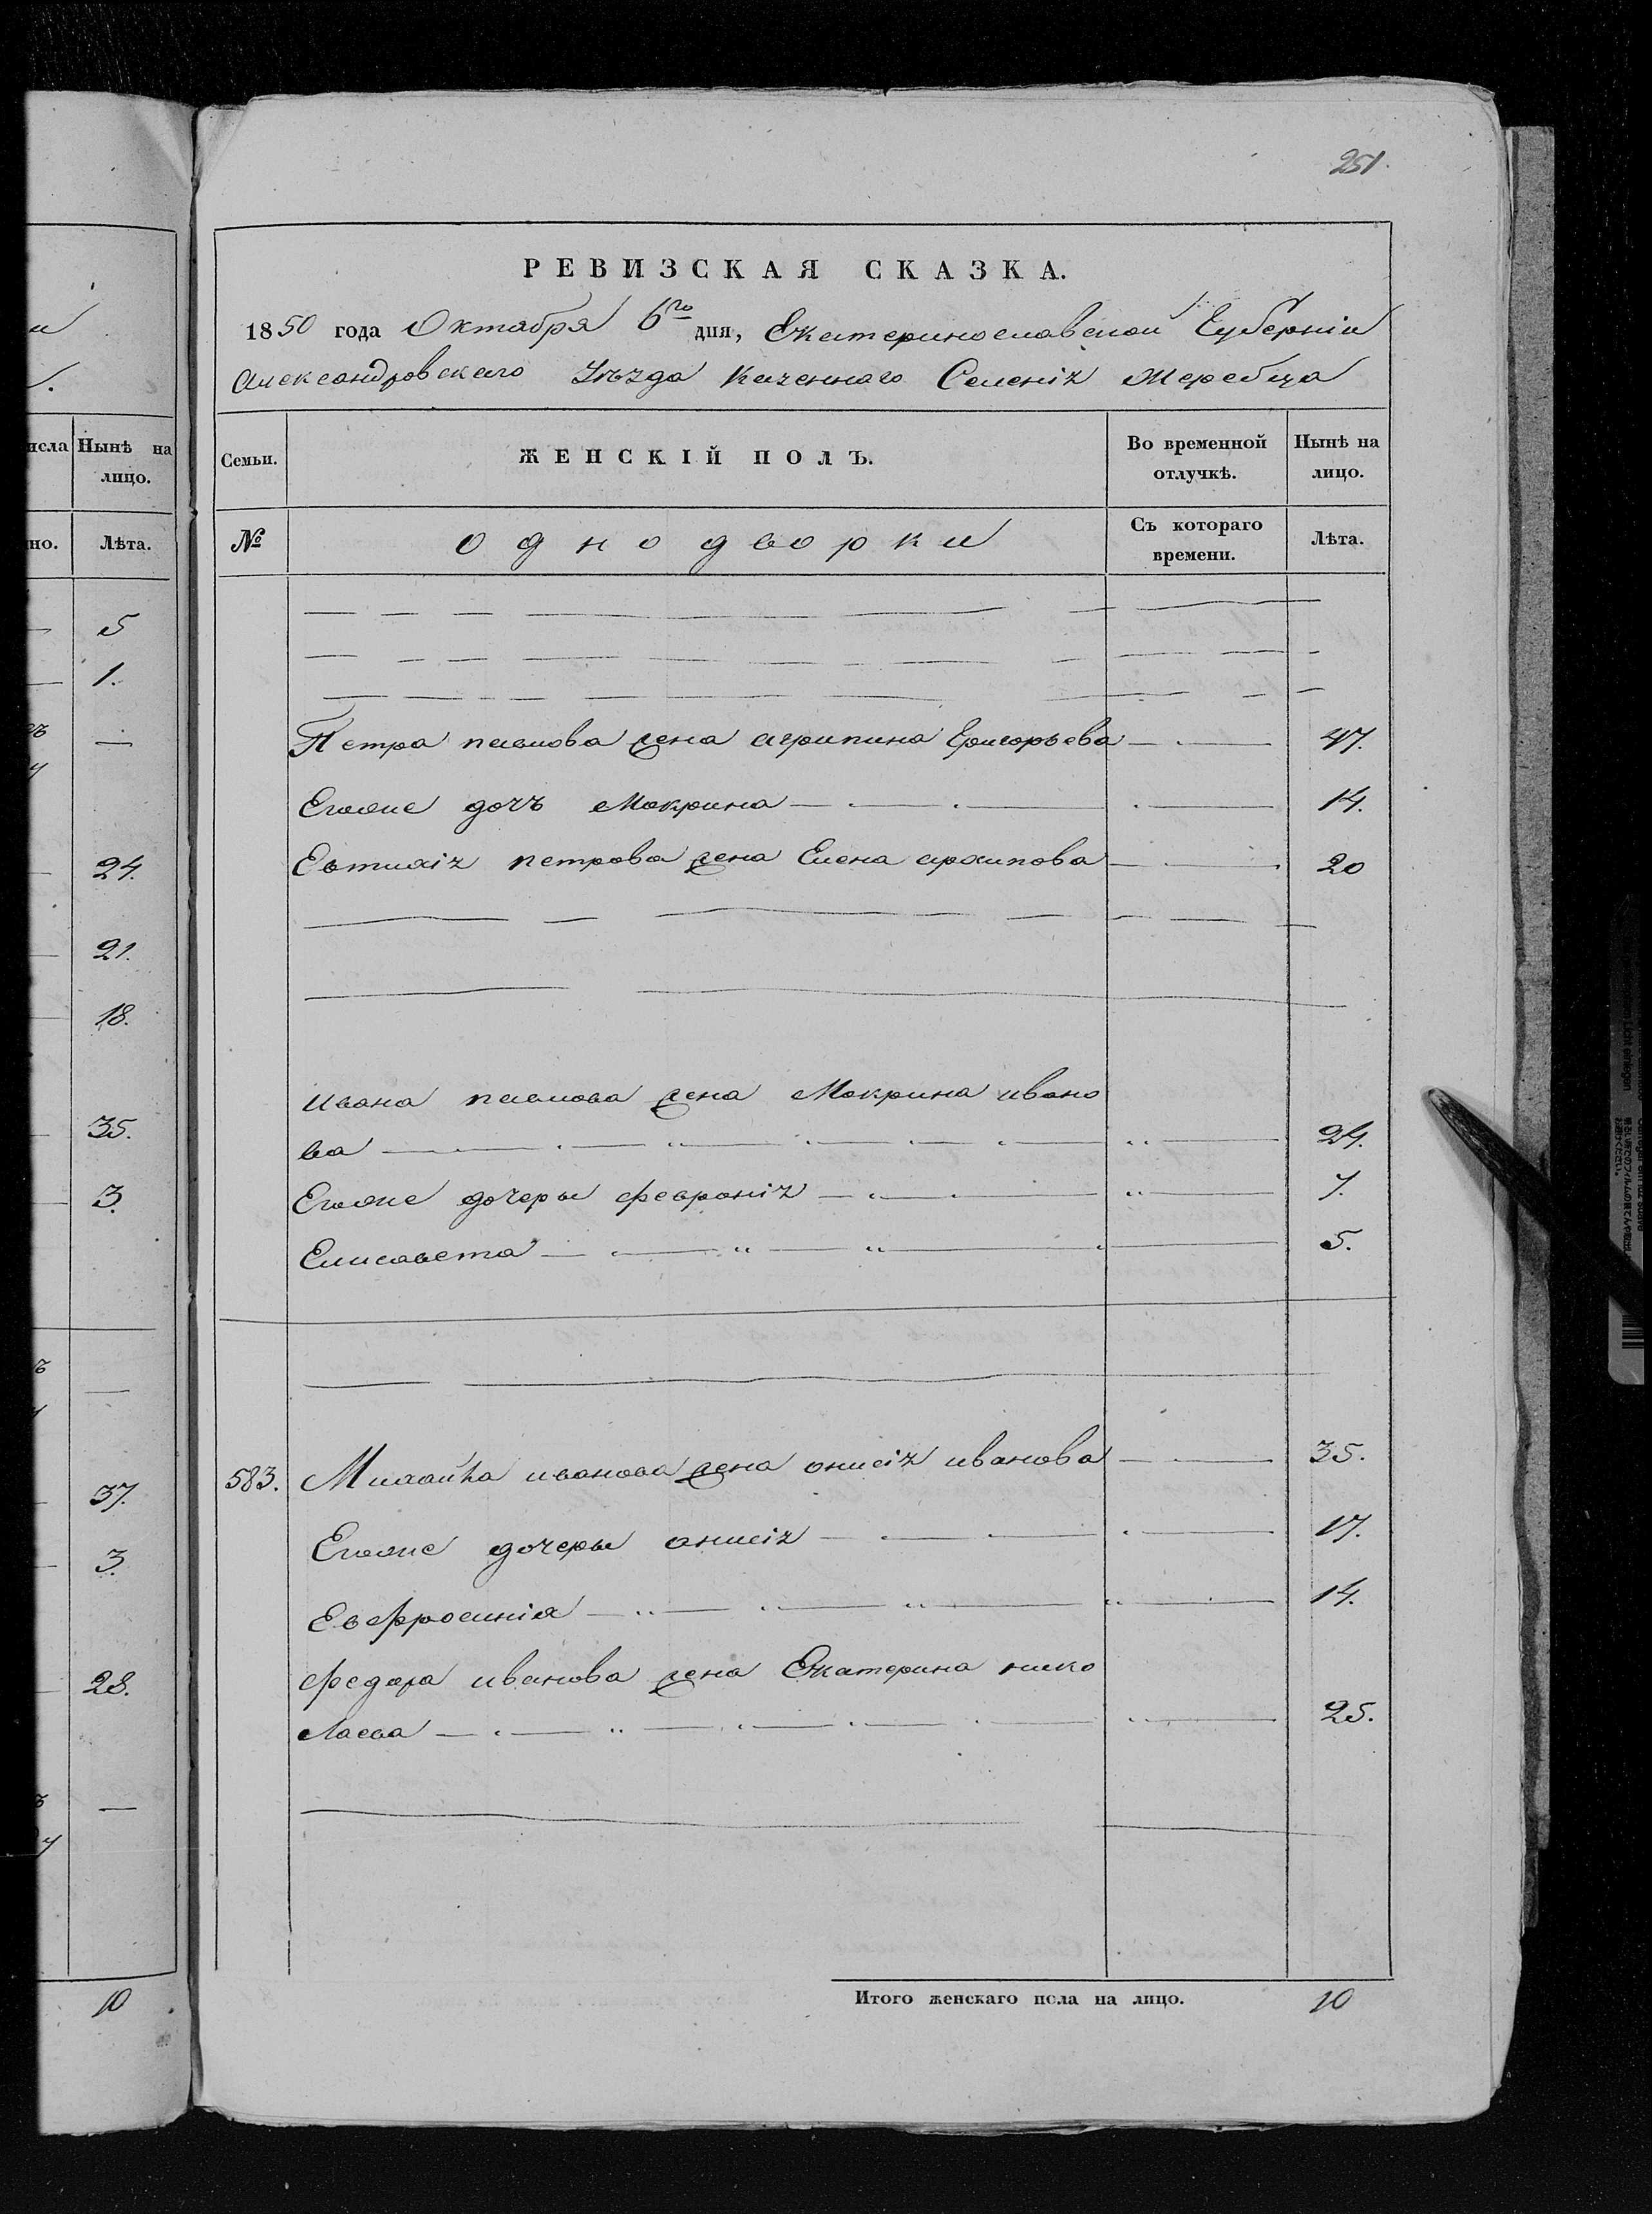 251.
РЕВИЗСКАЯ СКАЗКА.
1850 года Октября 6го дня, Екатеринославской Губерніи
Александровскаго Уѣзда Казеннаго Селенія Жеребца
Семьи. ЖЕНСКІЙ ПОЛЪ. Во временной отлучкѣ. Нынѣ на лицо.
№ Однодворки Съ котораго времени. Лѣта.
Петра павлова жена агрипина Григорьева 47.
Егоже дочь Макрина 14.
Евтихія петрова жена Елена архипова 20
Ивана павлова жена Макрина ивано
ва 24.
Егоже дочеры февронія 7.
Елисавета 5.
583. Михайла иванова жена онисія иванова 35.
Егоже дочеры анисія 17.
Евфросинія 14.
федора иванова жена Екатерина нико
лаева 25.
Итого женскаго пола на лицо. 10
Нынѣ на
лицо.
но. Лѣта.
5
1.
24.
21.
18.
35.
3.
37.
3.
28.
10